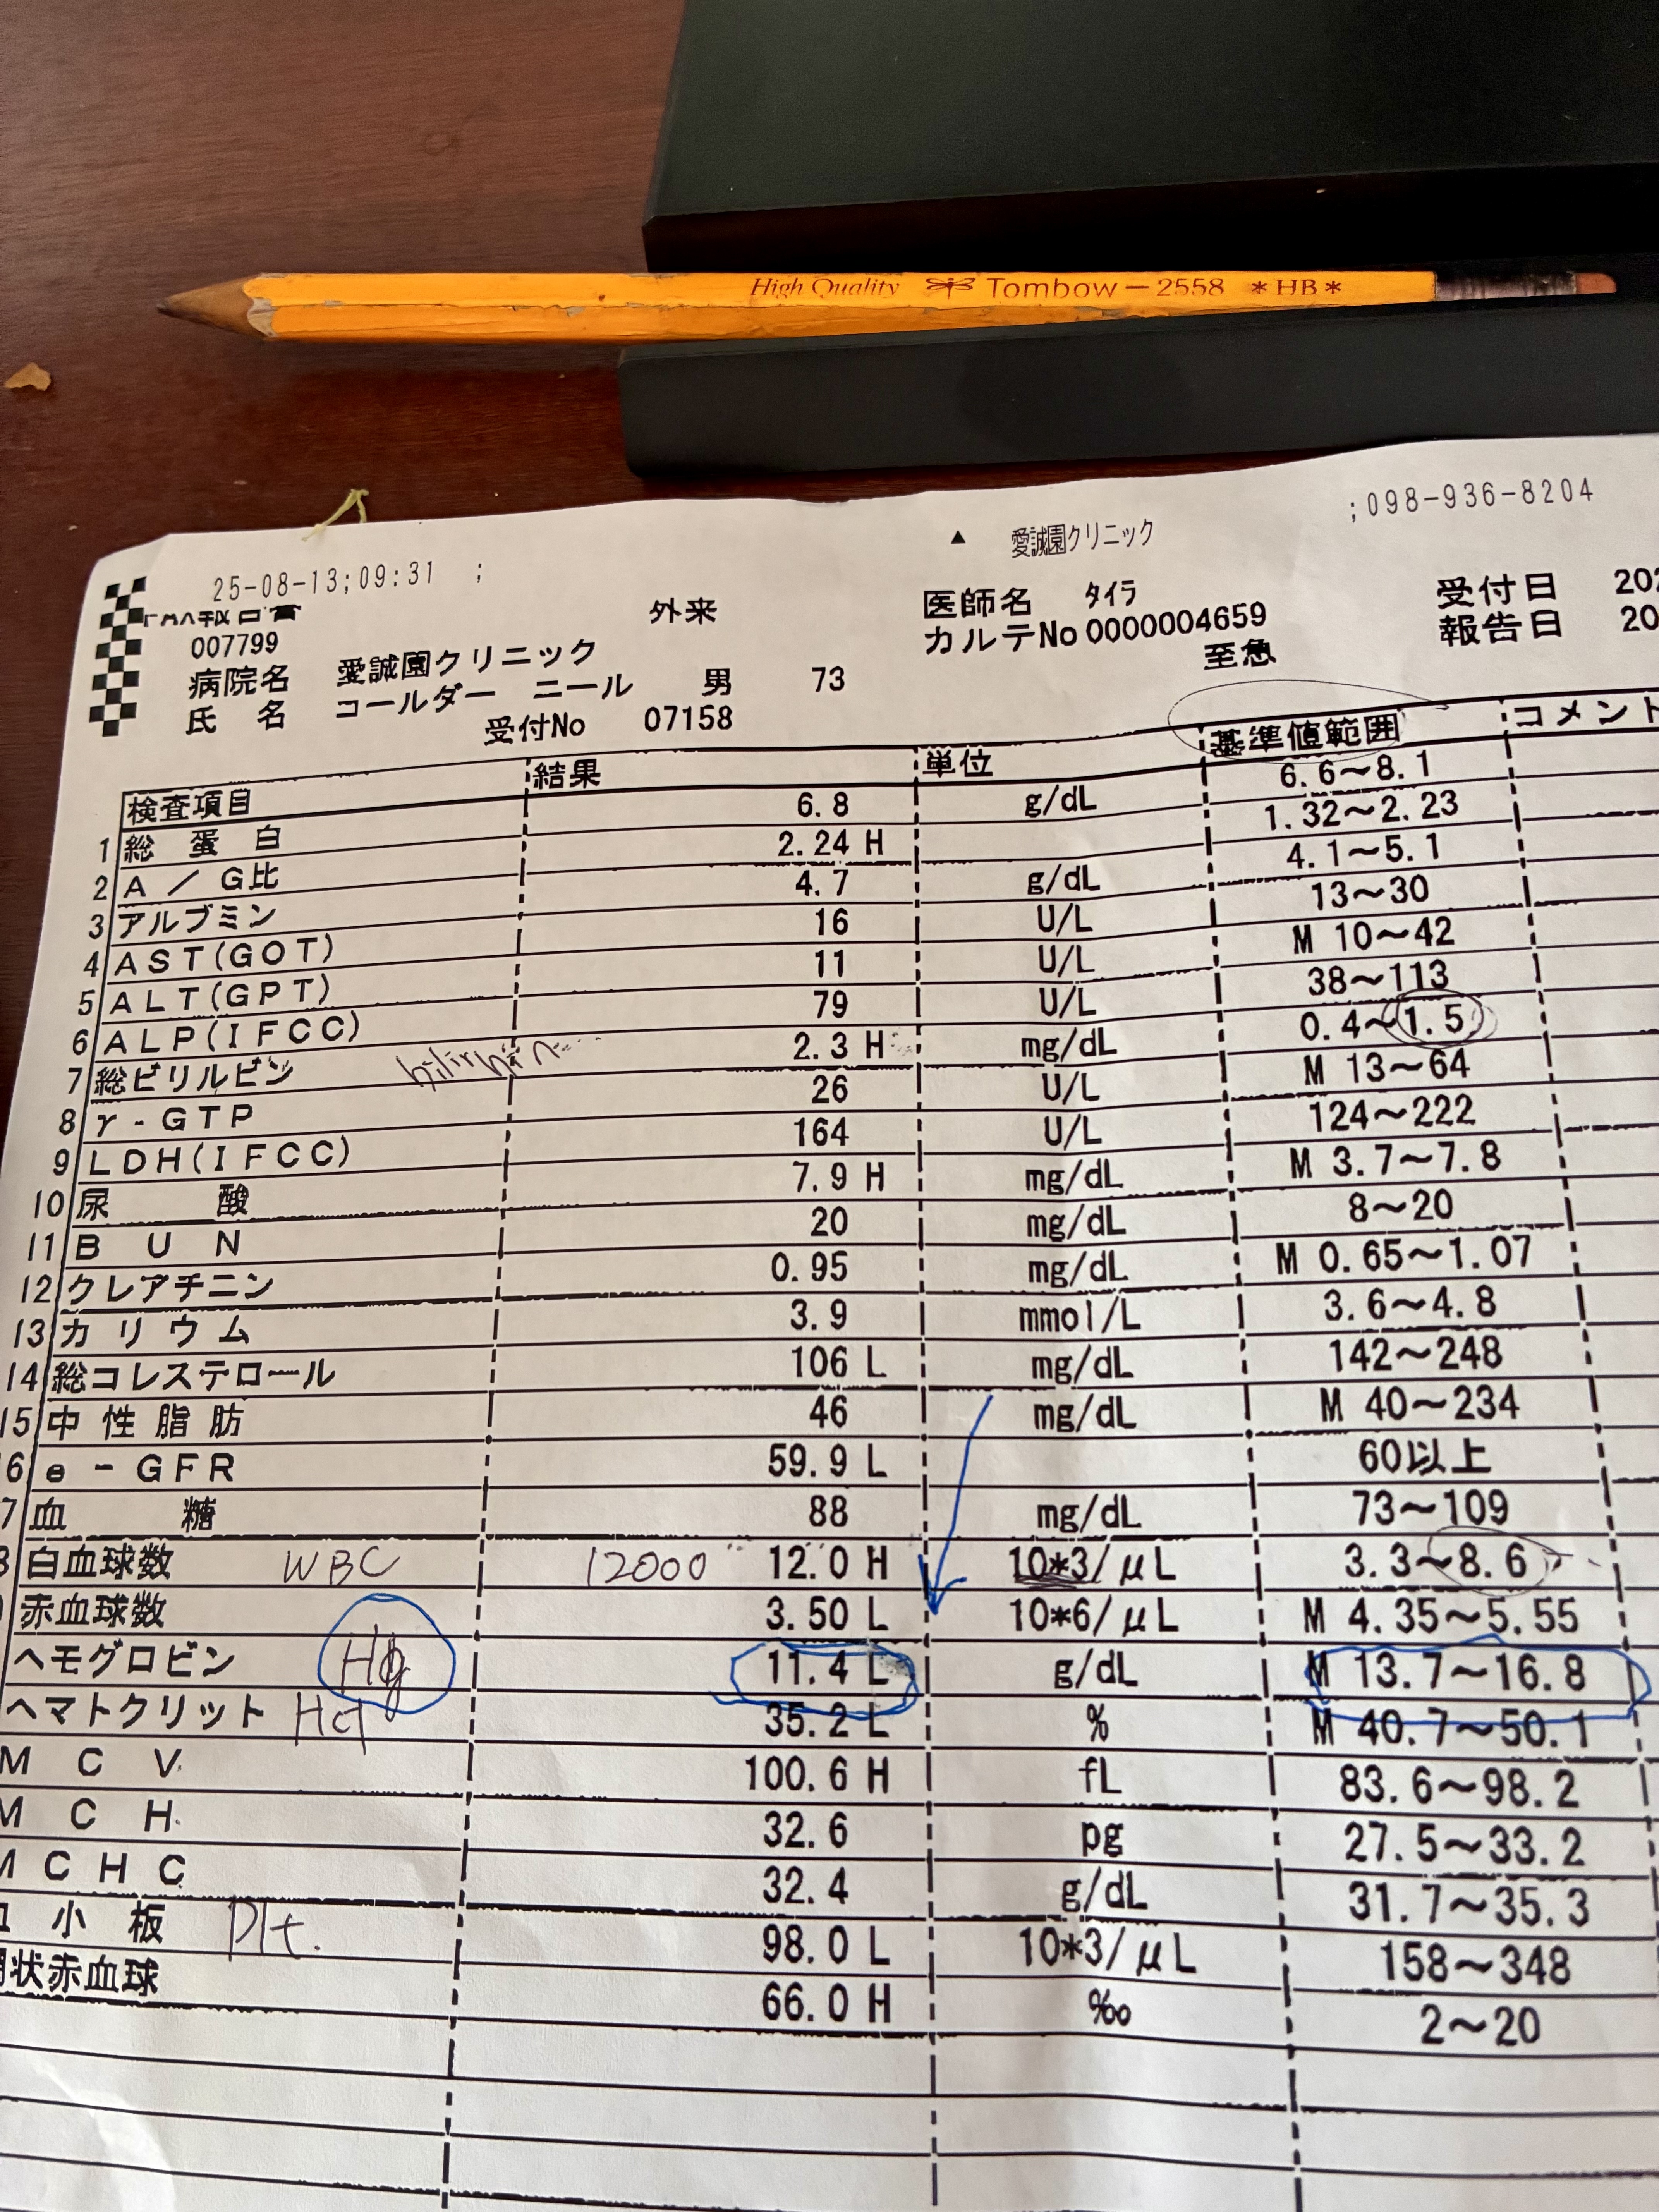 High Quality Tombow - 2558 *HB*
;098-936-8204
▲ 愛誠園クリニック
25-08-13;09:31 ;
外来
医師名 タイラ
受付日 202
007799
カルテNo 0000004659
報告日 20
病院名 愛誠園クリニック
至急
氏 名 コールダー ニール 男 73
受付No 07158
検査項目 結果 単位 基準値範囲 コメント
1 総 蛋 白 6.8 g/dL 6.6~8.1
2 A / G比 2.24 H 1.32~2.23
3 アルブミン 4.7 g/dL 4.1~5.1
4 AST(GOT) 16 U/L 13~30
5 ALT(GPT) 11 U/L M 10~42
6 ALP(IFCC) 79 U/L 38~113
7 総ビリルビン bilirubin 2.3 H mg/dL 0.4~1.5
8 γ-GTP 26 U/L M 13~64
9 LDH(IFCC) 164 U/L 124~222
10 尿 酸 7.9 H mg/dL M 3.7~7.8
11 B U N 20 mg/dL 8~20
12 クレアチニン 0.95 mg/dL M 0.65~1.07
13 カ リ ウ ム 3.9 mmol/L 3.6~4.8
14 総コレステロール 106 L mg/dL 142~248
15 中 性 脂 肪 46 mg/dL M 40~234
6 e-GFR 59.9 L 60以上
7 血 糖 88 mg/dL 73~109
8 白血球数 WBC 12000 12.0 H 10*3/μL 3.3~8.6
赤血球数 3.50 L 10*6/μL M 4.35~5.55
ヘモグロビン Hb 11.4 L g/dL M 13.7~16.8
ヘマトクリット Hct 35.2 L % M 40.7~50.1
M C V 100.6 H fL 83.6~98.2
M C H 32.6 pg 27.5~33.2
M C H C 32.4 g/dL 31.7~35.3
小 板 Plt. 98.0 L 10*3/μL 158~348
状赤血球 66.0 H ‰ 2~20